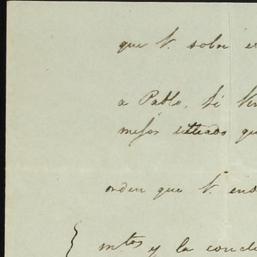 que V. sobre e
a Pablo. Si V
mejor enterado qu
orden que V.
mtos y la concl